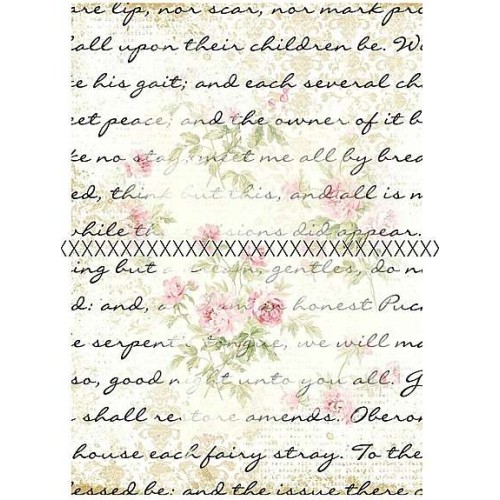 are lip, nor scar, nor mark pro
all upon their children be. W
e his gait; and each several ch
et peace; and the owner of it b
e no stay; meet me all by brea
ed, think but this, and all is m
while these visions did appear.
ing but a dream, gentles, do n
d: and, as I am an honest Puc
e serpent's tongue, we will ma
so, good night unto you all. G
shall restore amends. Oberon
house each fairy stray. To the
essed be: and the issue there c